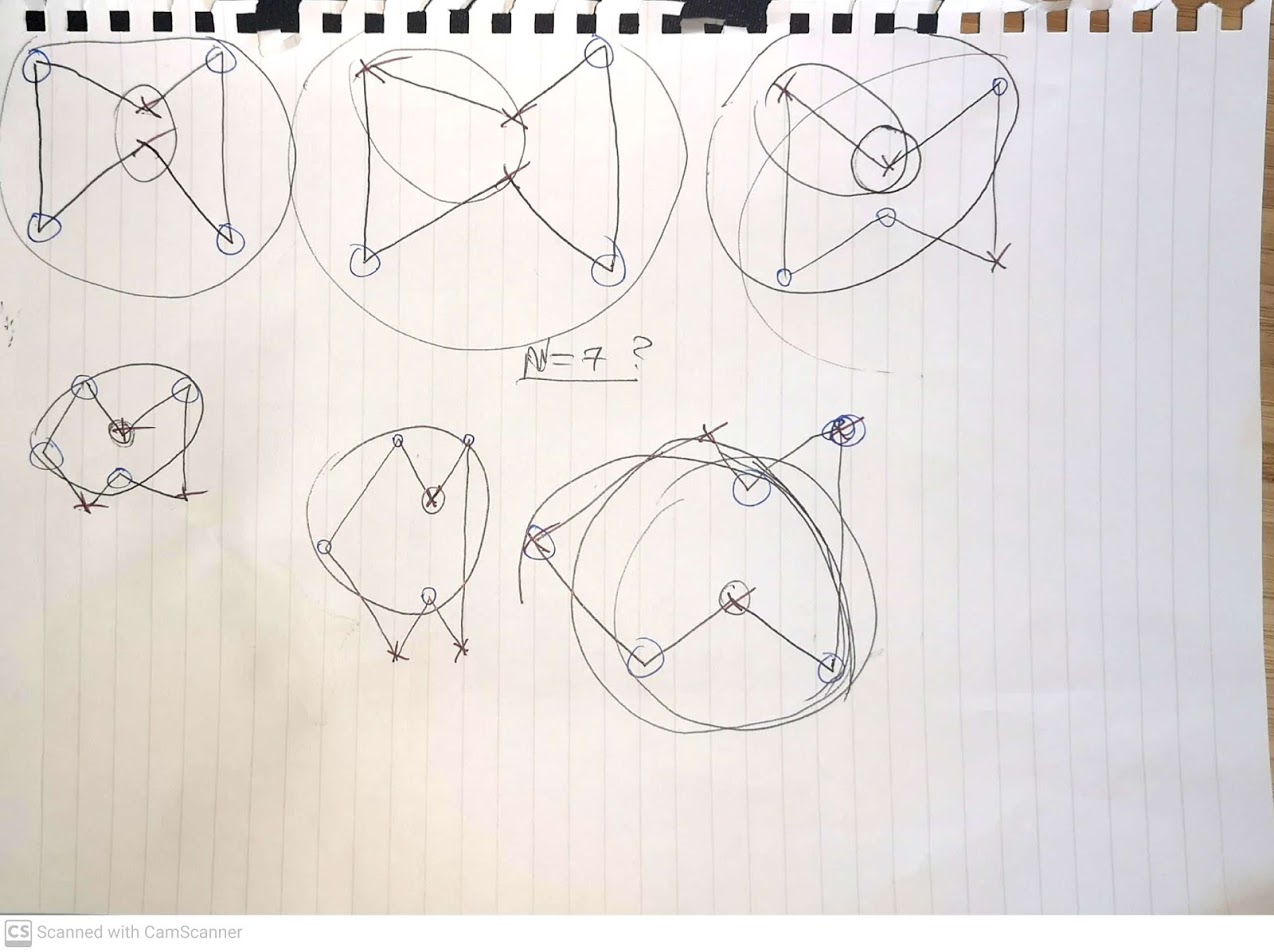 N=7?
CS Scanned with CamScanner